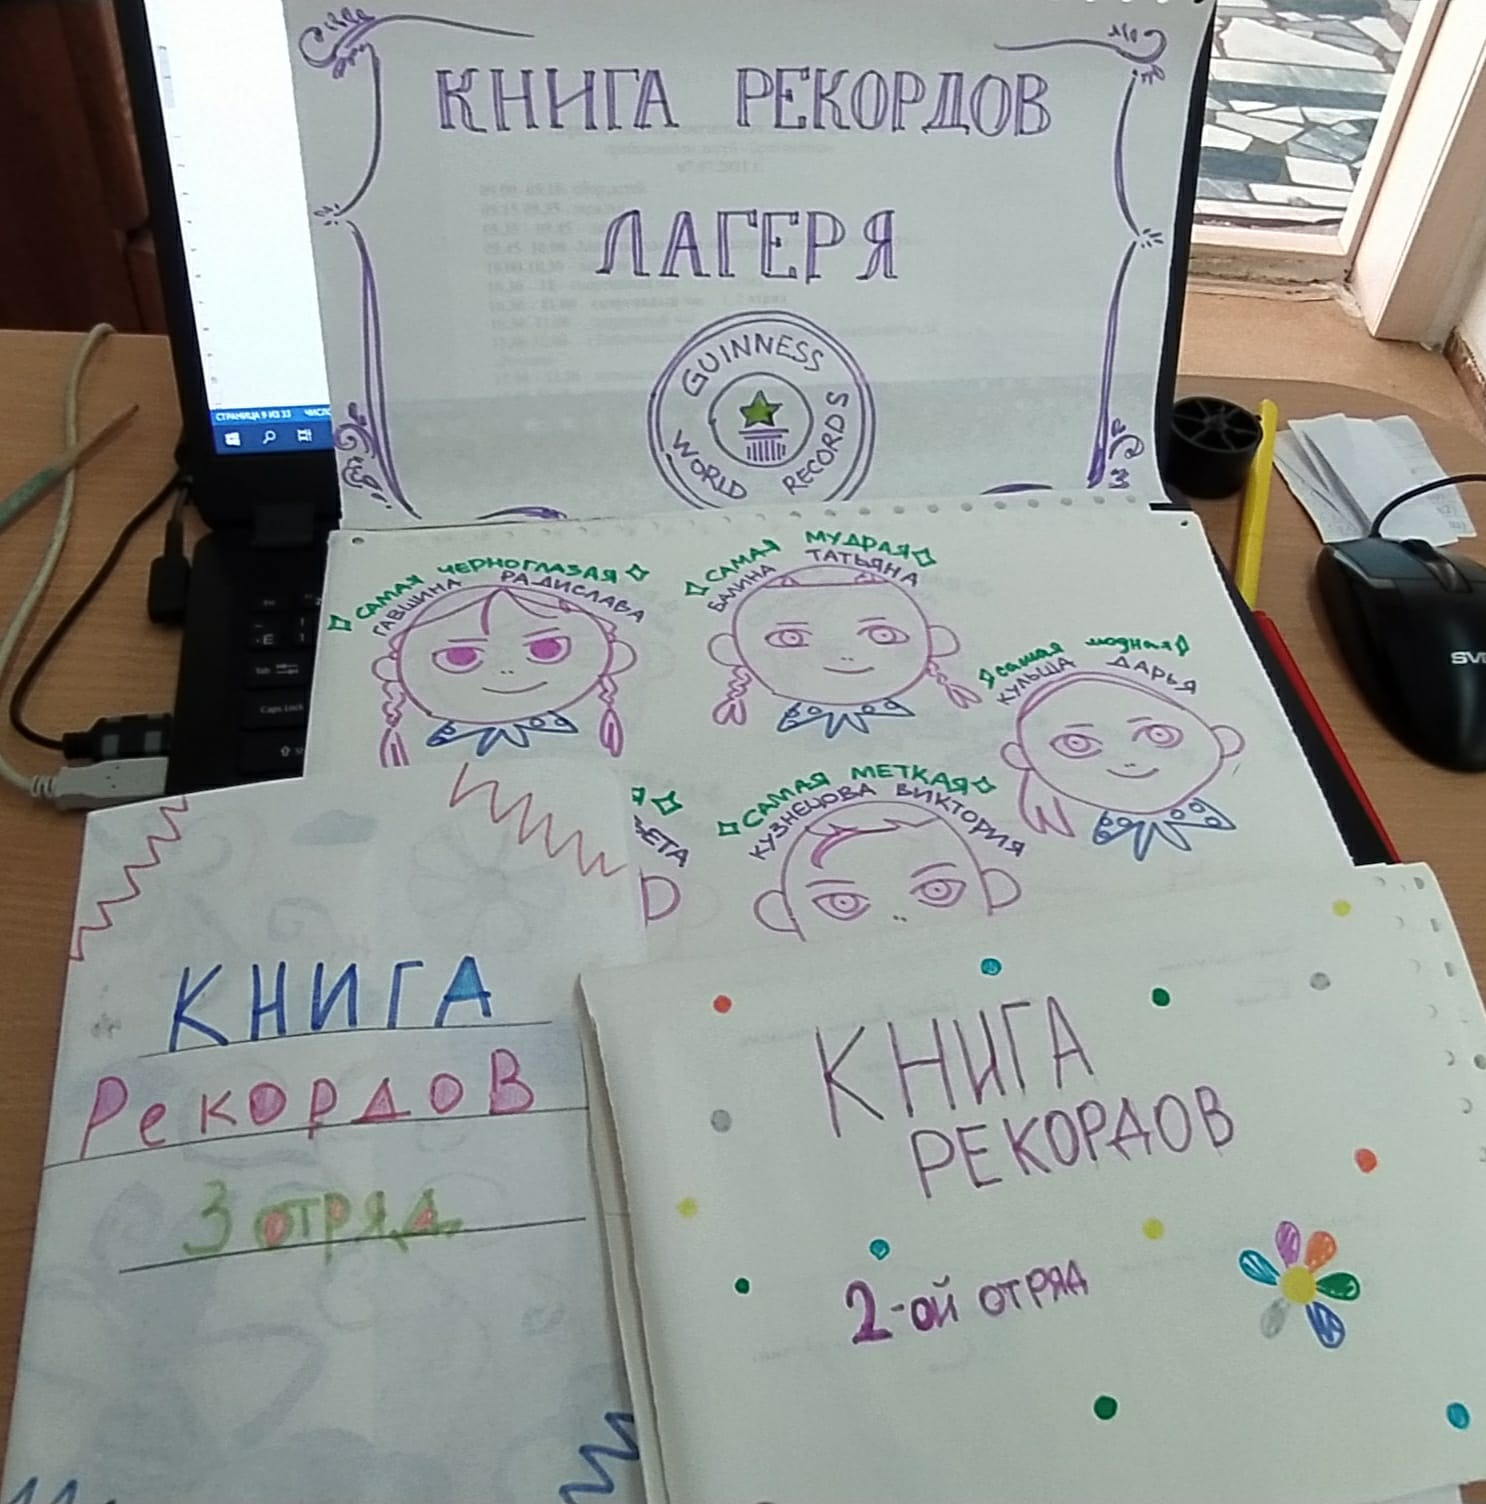 КНИГА РЕКОРДОВ
ЛАГЕРЯ
GUINNESS
WORLD RECORDS
СТРАНИЦА 9 ИЗ 33 ЧИСЛО
САМАЯ ЧЕРНОГЛАЗАЯ
ГАВШИНА РАДИСЛАВА
САМАЯ МУДРАЯ
БАЛИНА ТАТЬЯНА
самая модная
КУЛЬША ДАРЬЯ
САМАЯ МЕТКАЯ
КУЗНЕЦОВА ВИКТОРИЯ
Я
ВЕТА
Tab
Caps Lock
SV
КНИГА
РеКОРДОВ
3 ОТРЯД
КНИГА
РЕКОРДОВ
2-ОЙ ОТРЯД